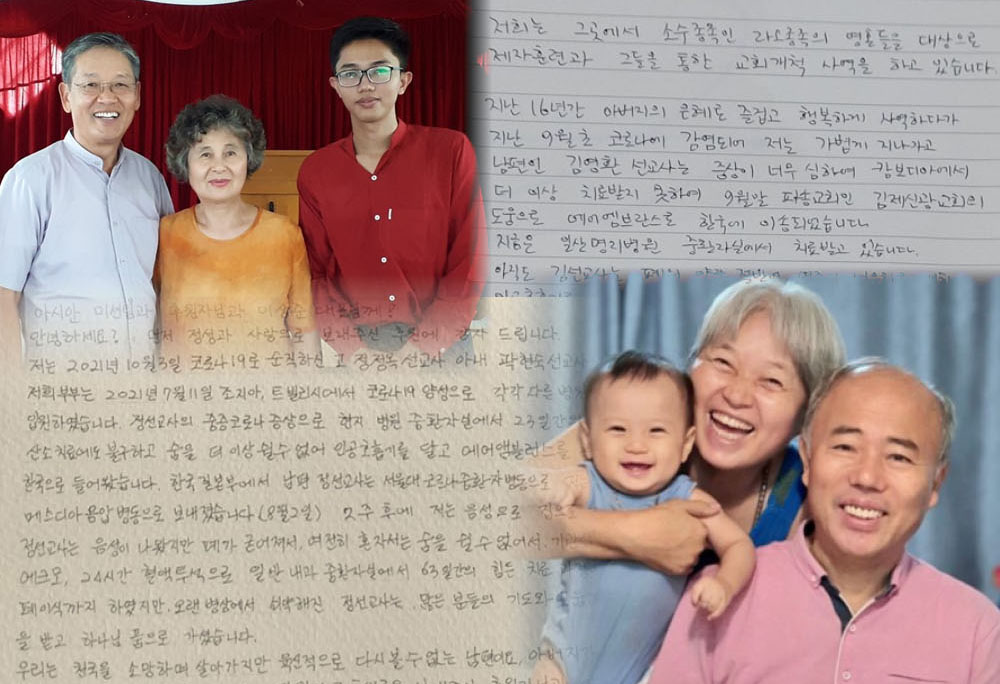 저희는 그곳에서 소수종족인 라오종족의 영혼들을 대상으로
제자훈련과 그들을 통한 교회개척 사역을 하고 있습니다.
지난 16년간 아버지의 은혜로 즐겁고 행복하게 사역하다가
지난 9월초 코로나에 감염되어 저는 가볍게 지나가고
남편인 김영환 선교사는 증상이 너무 심하여 캄보디아에서
더 이상 치료받지 못하여 9월말 파송교회인 김제신광교회의
도움으로 에어엠브란스로 한국에 이송되었습니다.
지금은 일산명지병원 중환자실에서 치료받고 있습니다.
아직도 김선교사는 폐의
아시안 미션
안녕하세요? 먼저 정성과 사랑으로 보내주신 후원에 감사 드립니다.
저는 2021년 10월3일 코로나19로 순직하신 고 정정옥 선교사 아내 곽현숙 선교사
저희부부는 2021년 7월11일 조지아, 트빌리시에서 코로나19 양성으로 각각 다른 병원
입원하였습니다. 정선교사의 중증코로나 증상으로 현지 병원 중환자실에서 23일간의
산소치료에도 불구하고 숨을 더이상 쉴수 없어 인공호흡기를 달고 에어앰뷸런스를
한국으로 들어왔습니다. 한국질본부에서 남편 정선교사는 서울대 코로나중환자병동으로
음압병동으로 보내졌습니다 (8월2일) 2주 후에 저는 음성으로
정선교사는 음성이 나왔지만 폐가 굳어져서, 여전히 혼자서는 숨을 쉴 수 없어서,
에크모, 24시간 혈액투석으로 일반 내과 중환자실에서 63일간의 힘든 치료
폐이식까지 하였지만, 오랜병상에서 쇠약해진 정선교사는, 많은 분들의 기도와
을 받고 하나님 품으로 가셨습니다.
우리는 천국을 소망하며 살아가지만 육신적으로 다시볼 수 없는 남편이요, 아버지